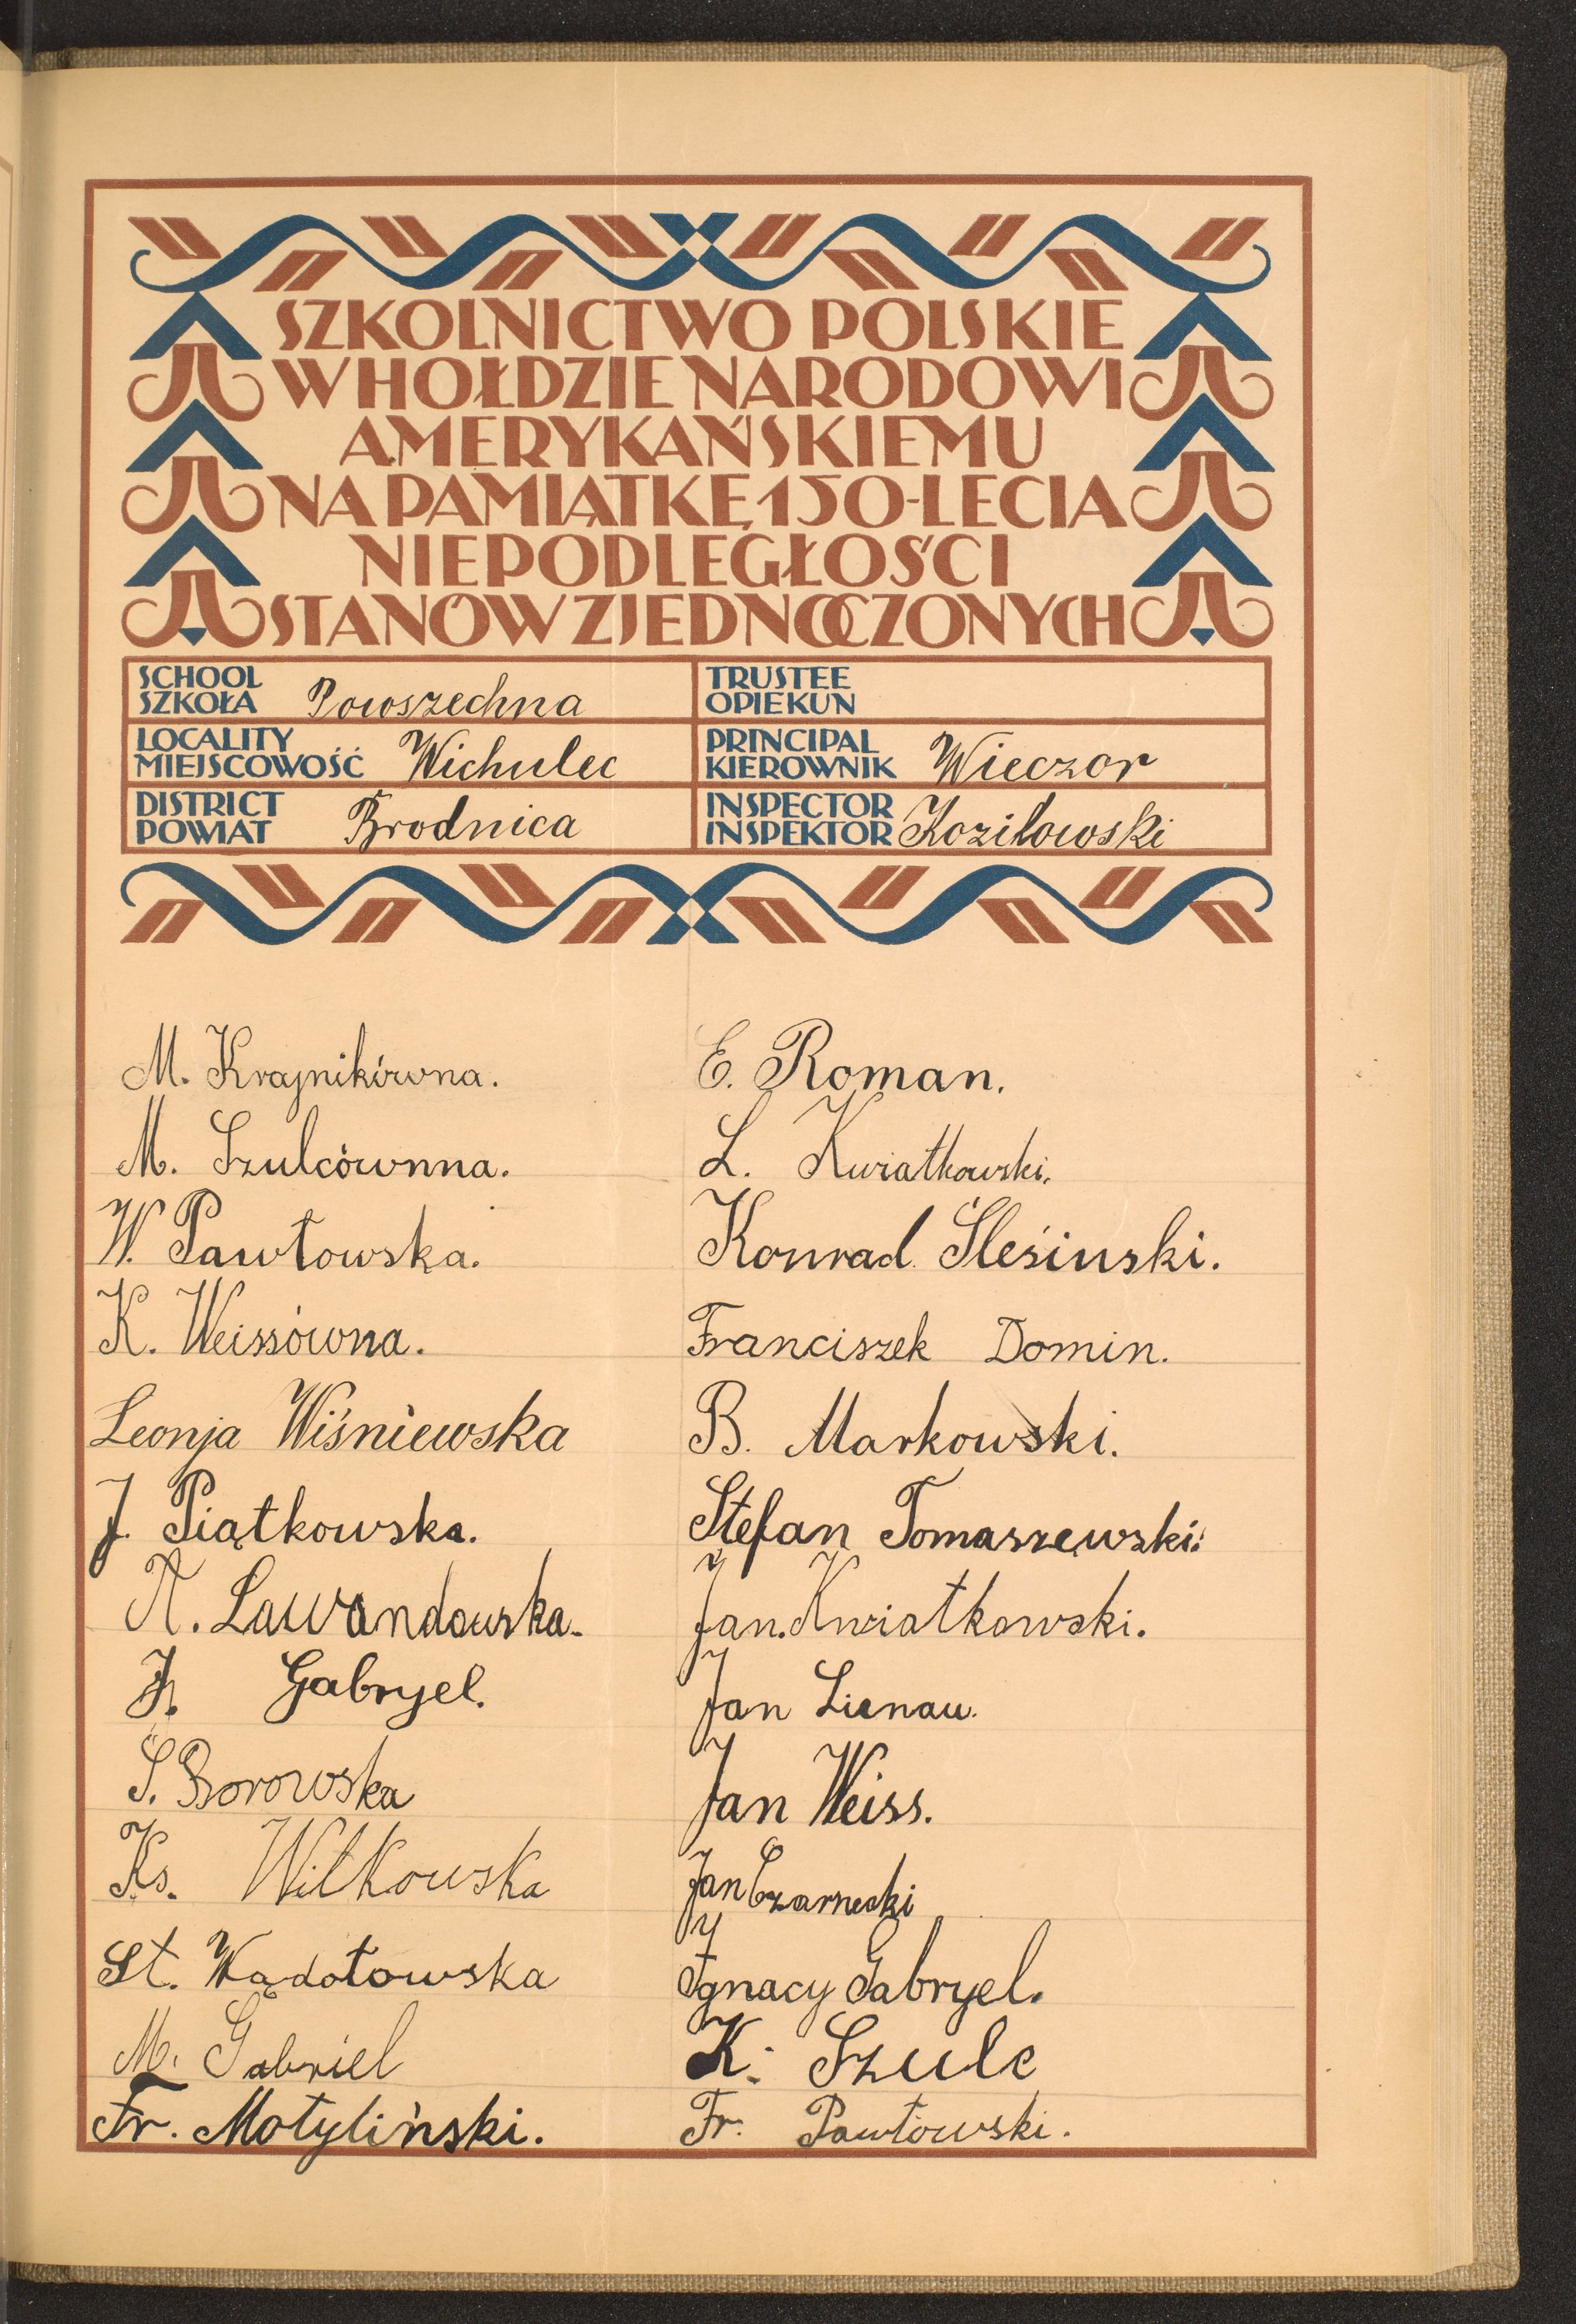 SZKOLNICTWO POLSKIE
W HOŁDZIE NARODOWI
AMERYKAŃSKIEMU
NA PAMIĄTKĘ 150-LECIA
NIEPODLEGŁOŚCI
STANÓW ZJEDNOCZONYCH
SCHOOL
SZKOŁA Powszechna
TRUSTEE
OPIEKUN
LOCALITY
MIEJSCOWOŚĆ Wichulec
PRINCIPAL
KIEROWNIK Wieczor
DISTRICT
POWIAT Brodnica
INSPECTOR
INSPEKTOR Koziłowski
M. Krajnikówna.
M. Szulcównna.
W. Pawłowska.
K. Weissówna.
Leonja Wiśniewska
J. Piątkowska.
A. Lawandowska.
Gabryel.
S. Borowska
Ks. Witkowska
St. Wądołowska
M. Gabriel
Fr. Motyliński.
E. Roman.
L. Kwiatkowski.
Konrad Ślesiński.
Franciszek Domin.
B. Markowski.
Stefan Tomaszewski.
Jan. Kwiatkowski.
Jan Lienau.
Jan Weiss.
Jan Czarnecki
Ignacy Gabryel.
K. Szulc
Fr. Pawłowski.